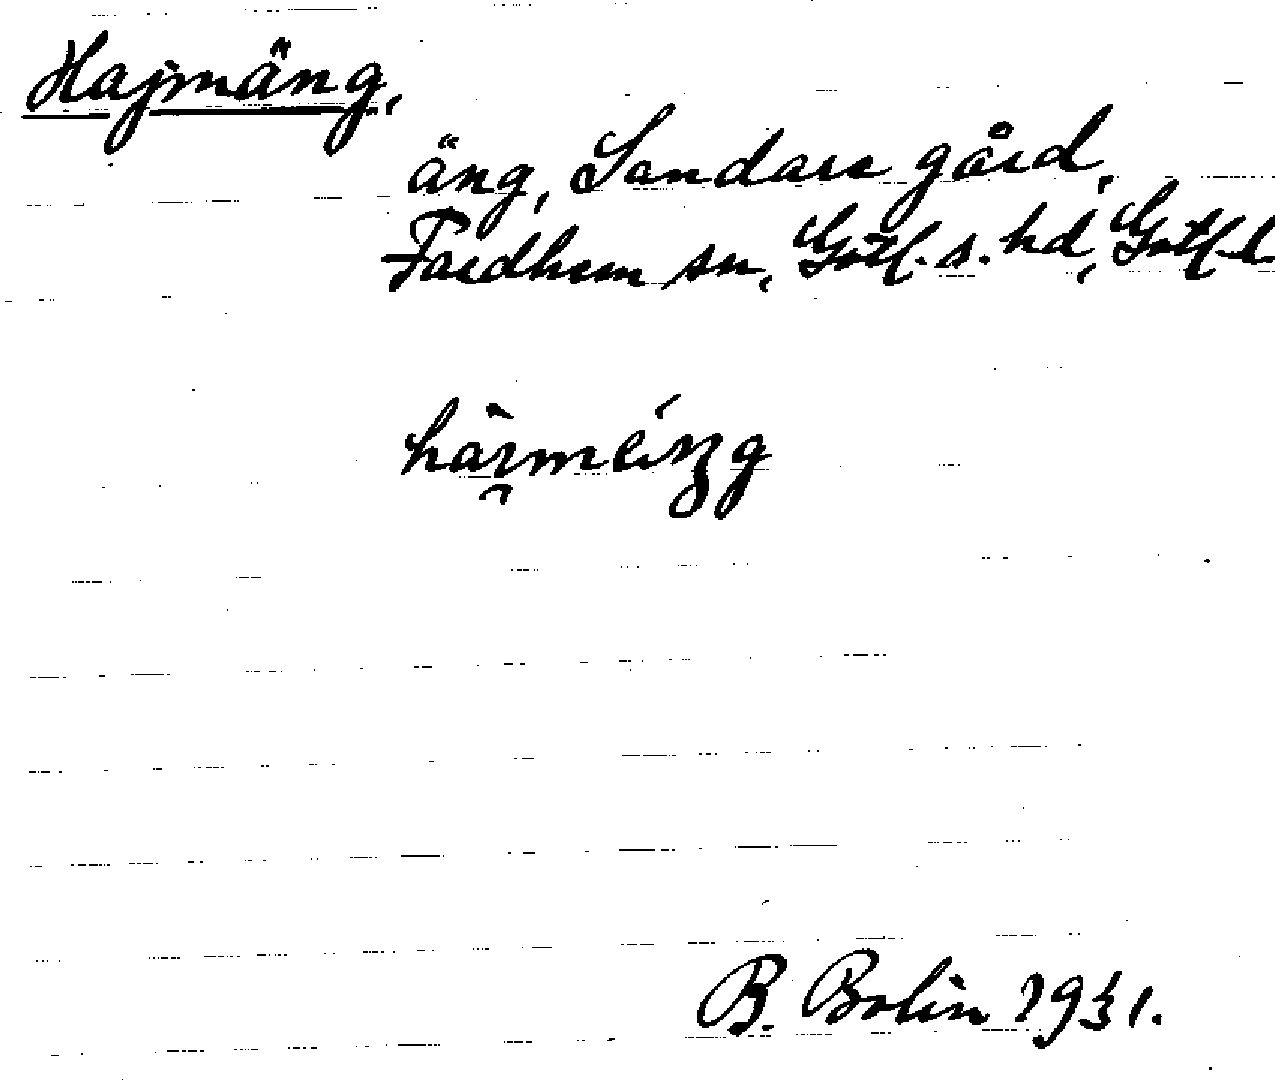 Hajmäng,
äng, Sandare gård,
Fardhem sn, Gotl. s. hd, Gotl. l
B. Bolin 1931.